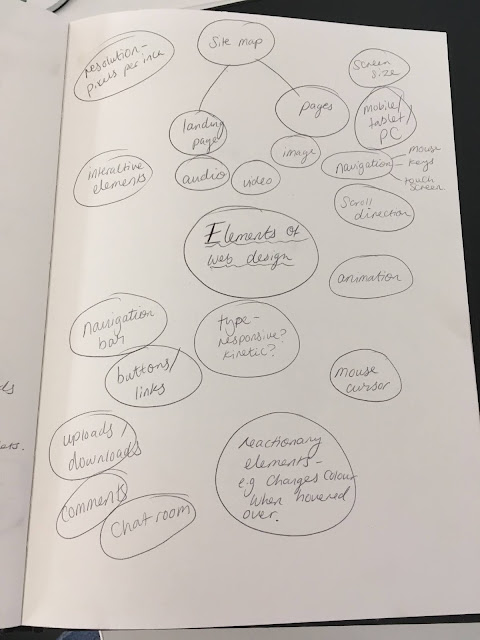 resolution-
pixels per inch
Site map
Screen
size
landing
page
pages
mobile/
tablet/
PC
interactive
elements
audio
video
image
navigation
mouse
keys
touch
screen
Scroll
direction
Elements of
web design
animation
navigation
bar
type-
responsive?
kinetic?
buttons/
links
mouse
cursor
uploads/
downloads
comments
Chat room
reactionary
elements-
e.g changes colour
when hovered
over.